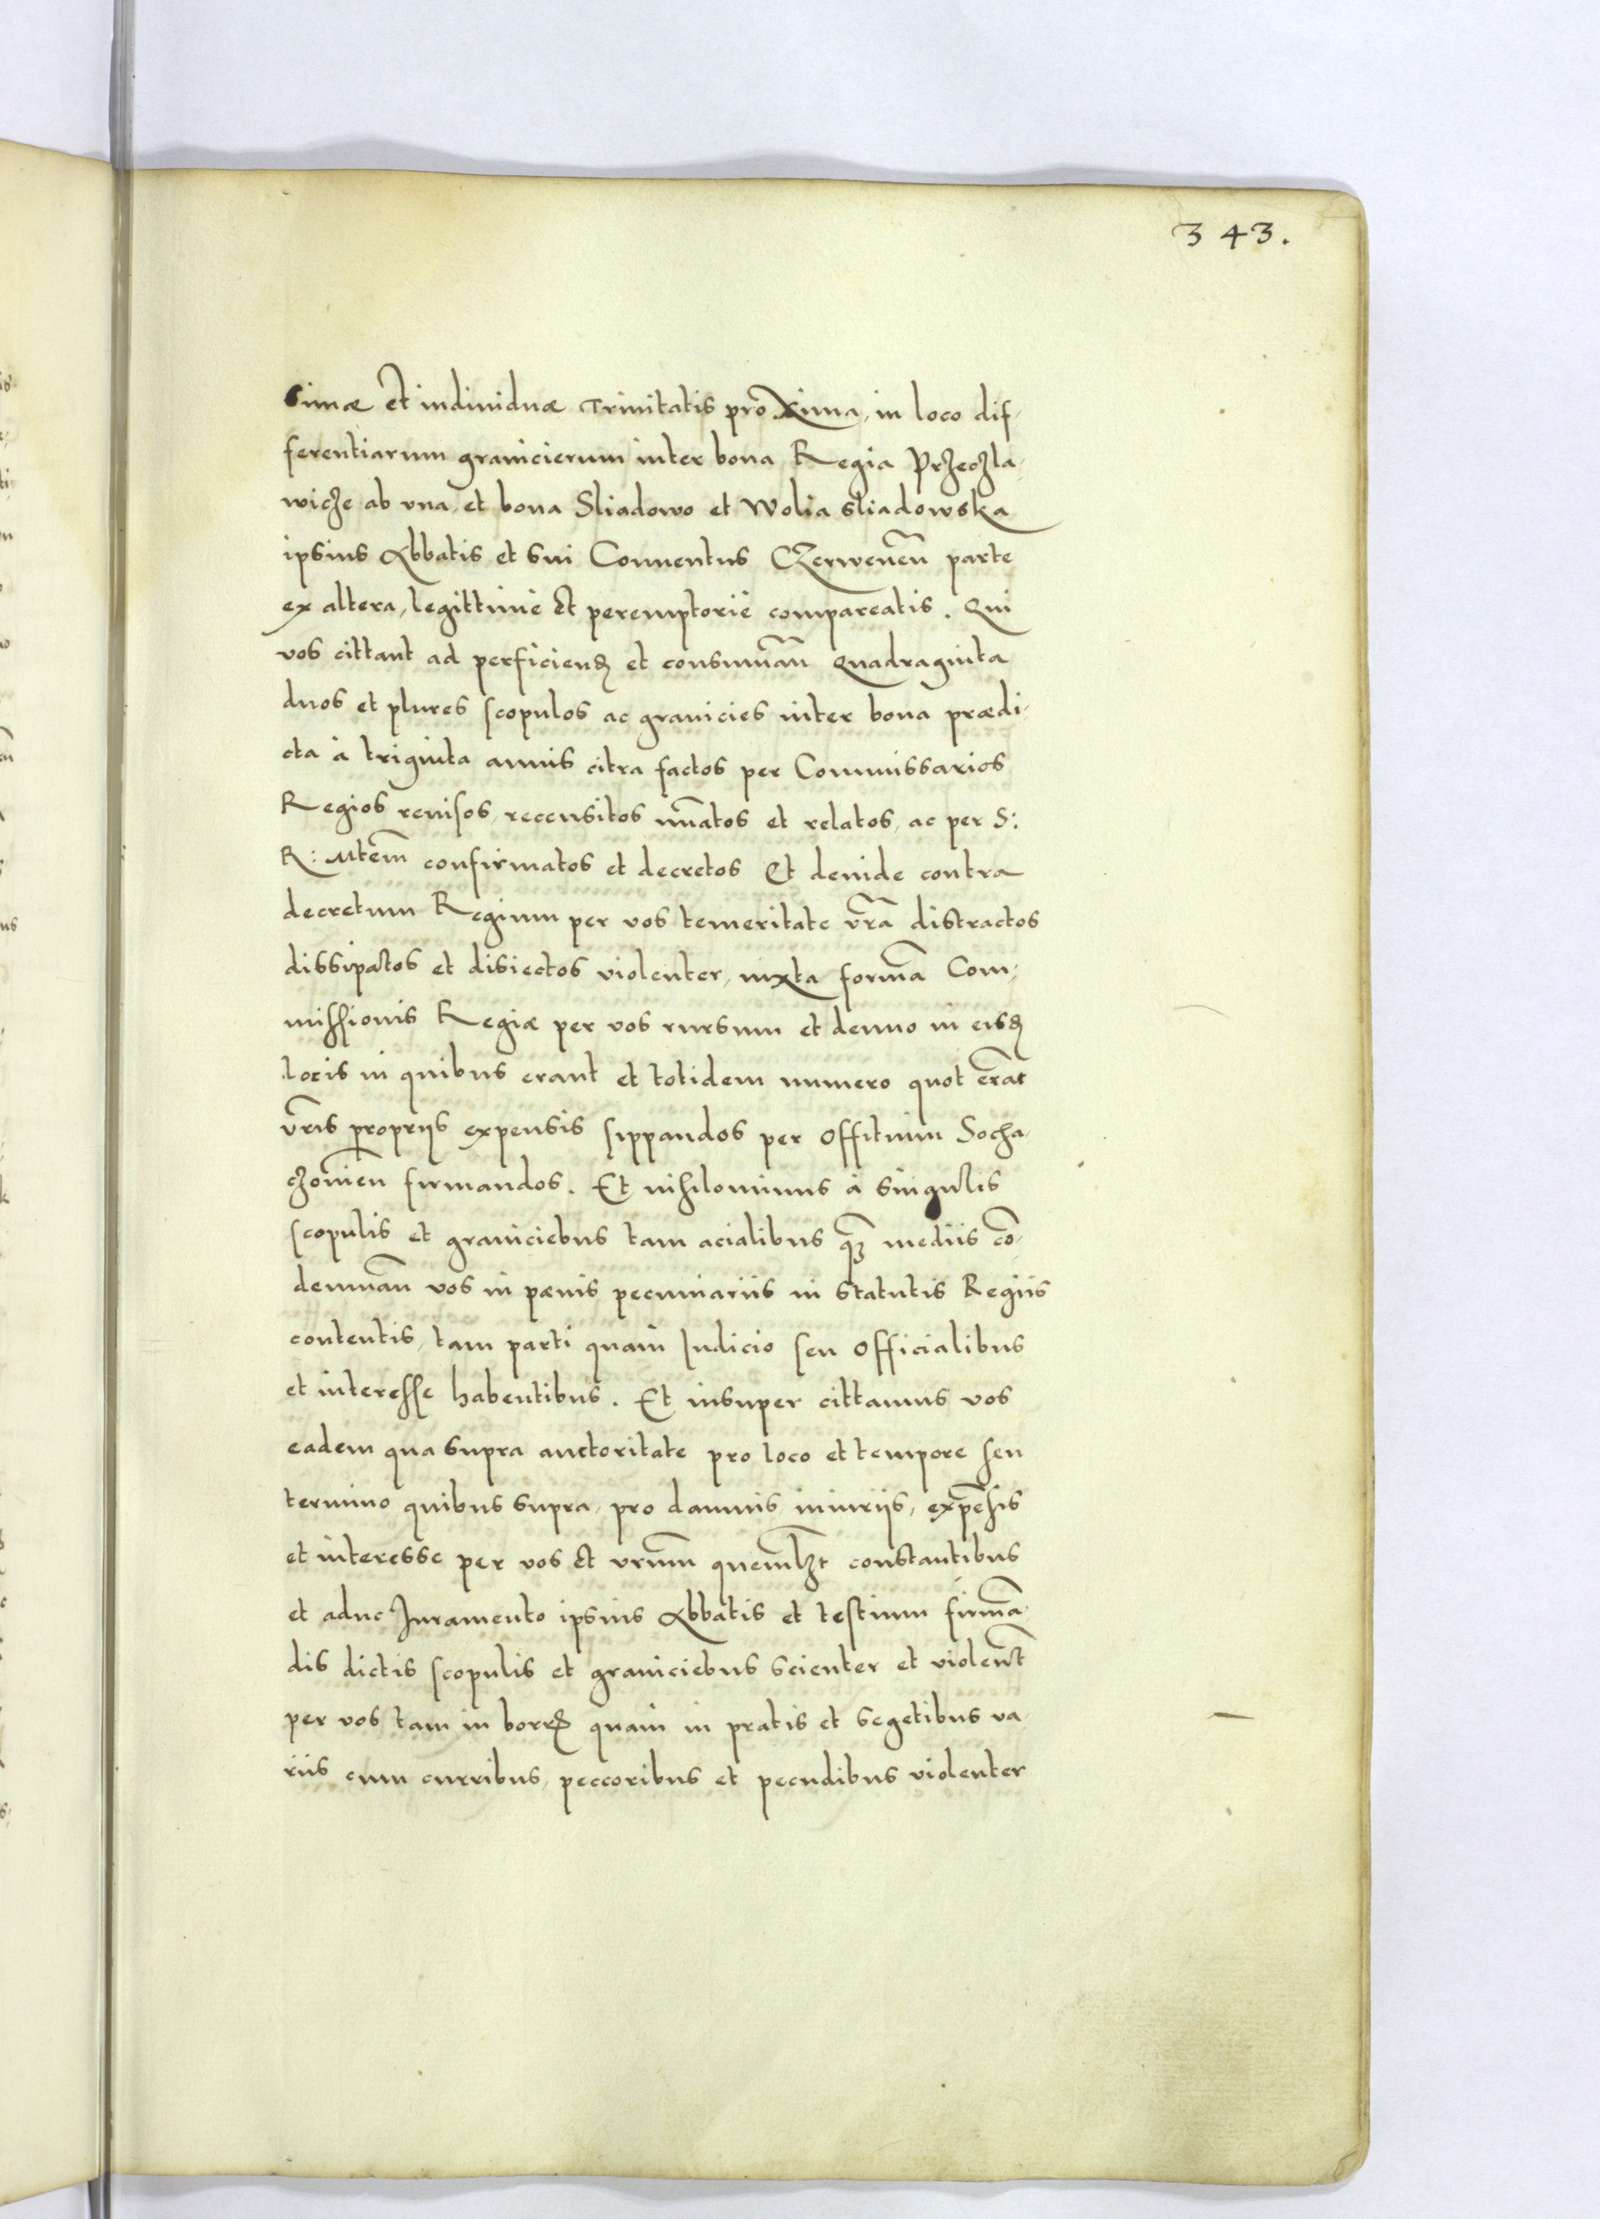 343.
simæ et indiuiduæ Trinitatis proxima, in loco dif-
ferentiarum granicierum inter bona Regia Przeczla-
wicze ab vna et bona Sliadowo et Wolia sliadowska
ipsius Abbatis et sui Conuentus Czerwenen̄ parte
ex altera, legittimè et peremptoriè compareatis. Qui
vos cittant ad perficienđ et consumān quadraginta
duos et plures scopulos ac granicies inter bona prædi-
cta à triginta annis citra factos per Commissarios
Regios reuisos, recensitos nūatos et relatos, ac per S:
R: Mtem̄ confirmatos et decretos Et deinde contra
decretum Regium per vos temeritate vr̄a distractos
dissipatos et disiectos violenter, iuxta formā Com-
missionis Regiæ per vos rursum et denuo in eisđ
locis in quibus erant et totidem numero quot erāt
vr̄is proprijs expensis sippandos per offitium Socha-
czouien̄ firmandos. Et nihilominus à singulis
scopulis et graniciebus tam acialibus q̄ȝ mediis cō-
demnān vos in pænis pecuniariis in statutis Regiis
contentis, tam parti quàm Iudicio seu officialibus
et interesse habentibus. Et insuper cittamus vos
eadem qua supra auctoritate pro loco et tempore seu
termino quibus supra, pro damnis, iniurijs, expēsis
et interesse per vos et vrūm quemlȝt constantibus
et aduc Iuramento ipsius Abbatis et testium firmā-
dis dictis scopulis et graniciebus scienter et violent̄
per vos tam in borrđ quàm in pratis et segetibus va-
riis cum curribus, peccoribus et pecudibus violenter